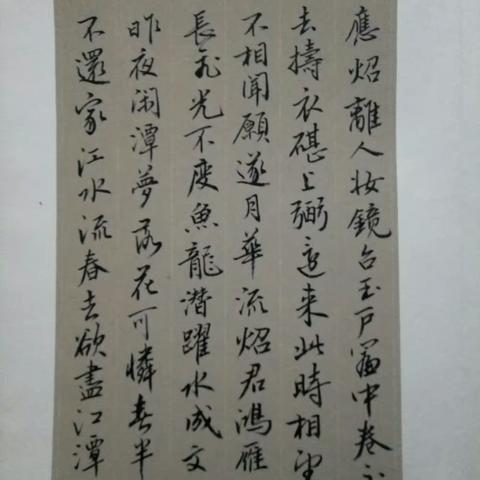 應炤離人妆鏡台玉戶簾中卷不
去擣衣碪上拂還来此時相望
不相聞願逐月華流炤君鴻雁
長飛光不度魚龍潛躍水成文
昨夜闲潭夢落花可憐春半
不還家江水流春去欲盡江潭